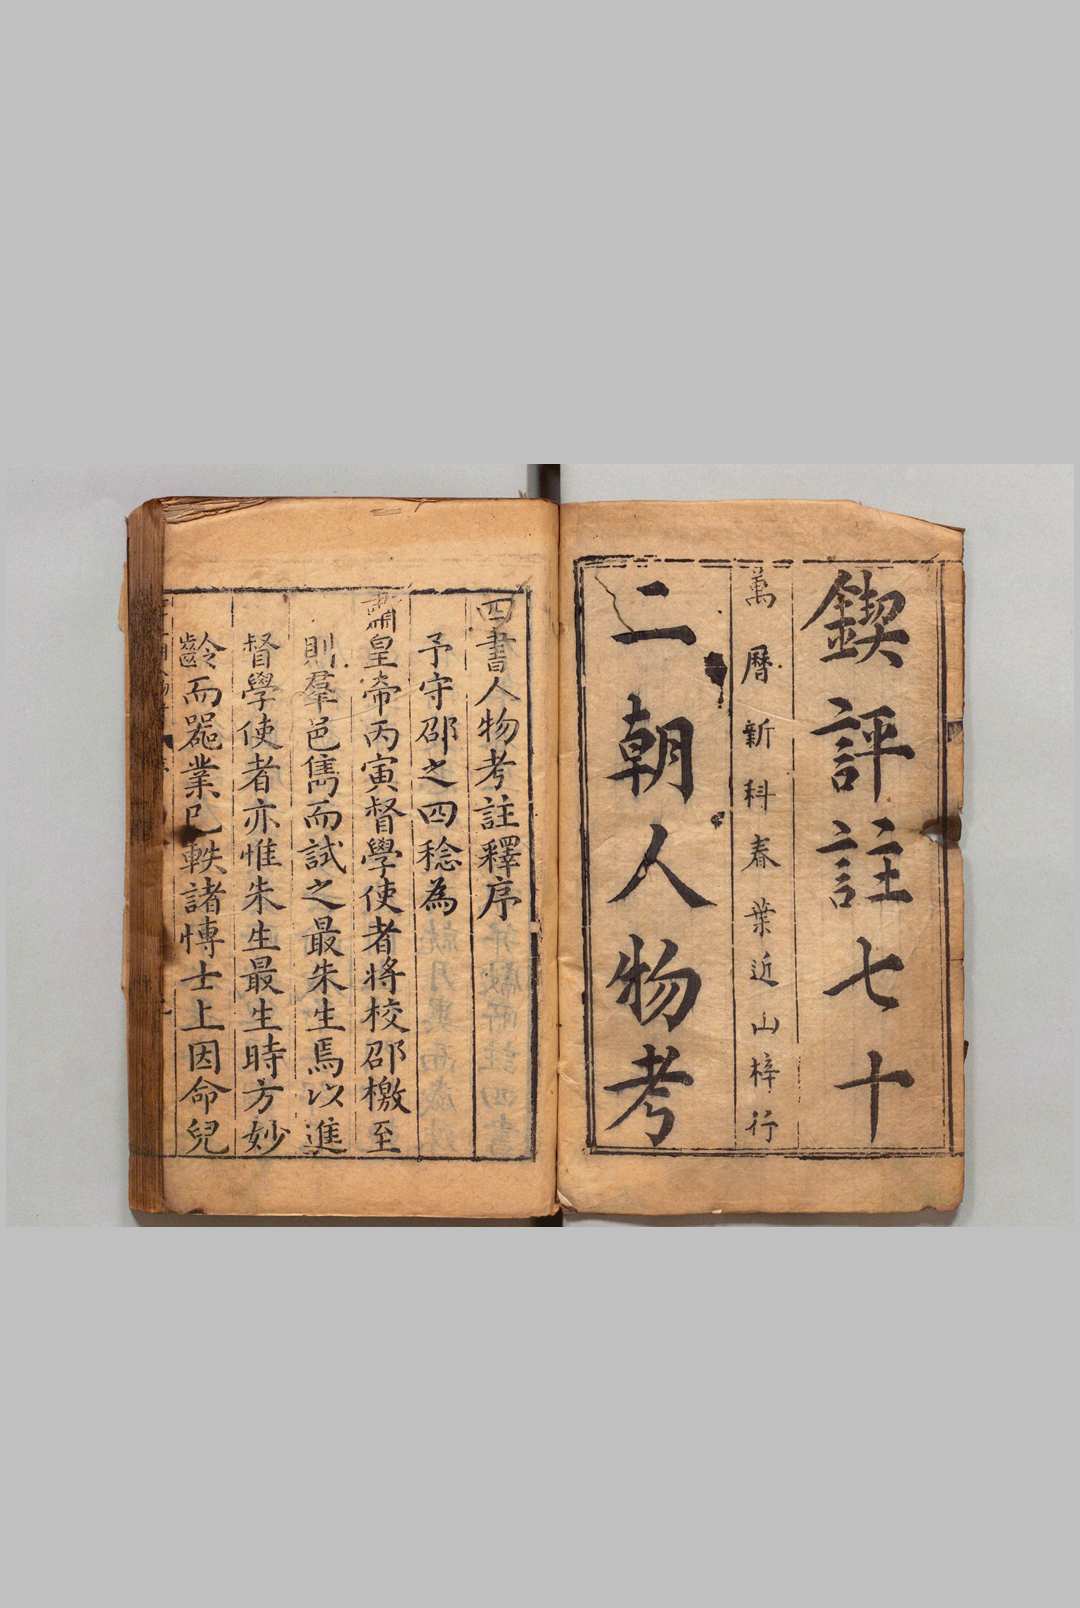 鍥評註七十
萬曆新科春葉近山梓行
二朝人物考
四書人物考註釋序
予守邵之四稔為
肅皇帝丙寅督學使者將校邵檄至
則羣邑雋而試之最朱生焉以進
督學使者亦惟朱生最生時方妙
齡而器業已軼諸博士上因命兒